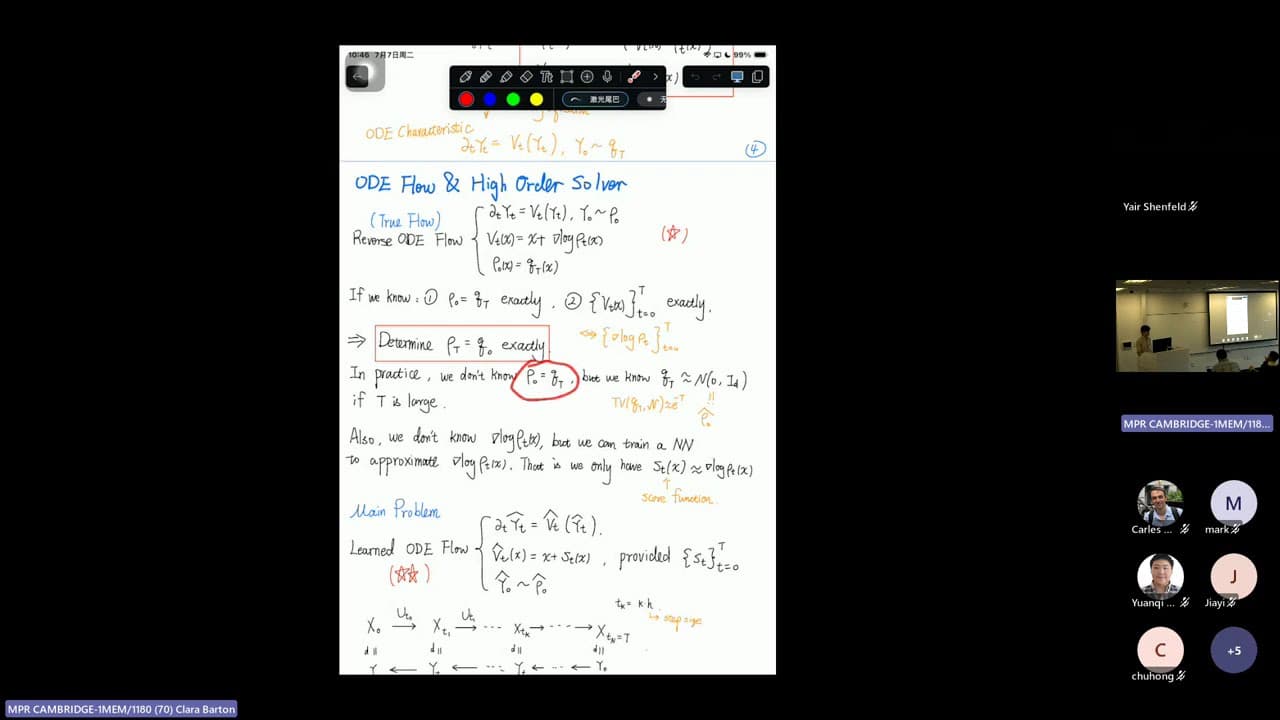 10:46 7月7日周二
99%
激光尾巴
ODE Characteristic
∂tYt = Vt(Yt), Y₀ ~ q_T
④
ODE Flow & High Order Solver
(True Flow)
Reverse ODE Flow
∂tYt = Vt(Yt), Y₀ ~ ρ₀
Vt(x) = x + ∇log ρt(x)
ρ₀(x) = q_T(x)
(☆)
If we know: ① ρ₀ = q_T exactly. ② {Vt(x)}_{t=0}^T exactly.
⇒ Determine ρ_T = q₀ exactly.
⇔ {∇log ρt}_{t=0}^T
In practice, we don't know ρ₀ = q_T, but we know q_T ≈ N(0, I_d)
if T is large.
TV(q_T, N) ≈ e^{-T}
ρ̂₀
Also, we don't know ∇log ρt(x), but we can train a NN
to approximate ∇log ρt(x). That is we only have St(x) ≈ ∇log ρt(x)
↑
score function.
Main Problem
Learned ODE Flow
(☆☆)
∂tŶt = V̂t(Ŷt).
V̂t(x) = x + St(x), provided {St}_{t=0}^T
Ŷ₀ ~ ρ̂₀
t_k = k·h
↳ step size
X₀ → X_{t₁} → ··· X_{t_k} → ··· → X_{t_N}=T
U_{t₀} U_{t₁}
d || d || d || d ||
← ← ··· ← ··· ← Y₀
Yair Shenfeld
MPR CAMBRIDGE-1MEM/118...
M
Carles ... mark
J
Yuanqi ... Jiayi
C
+5
chuhong
MPR CAMBRIDGE-1MEM/1180 (70) Clara Barton